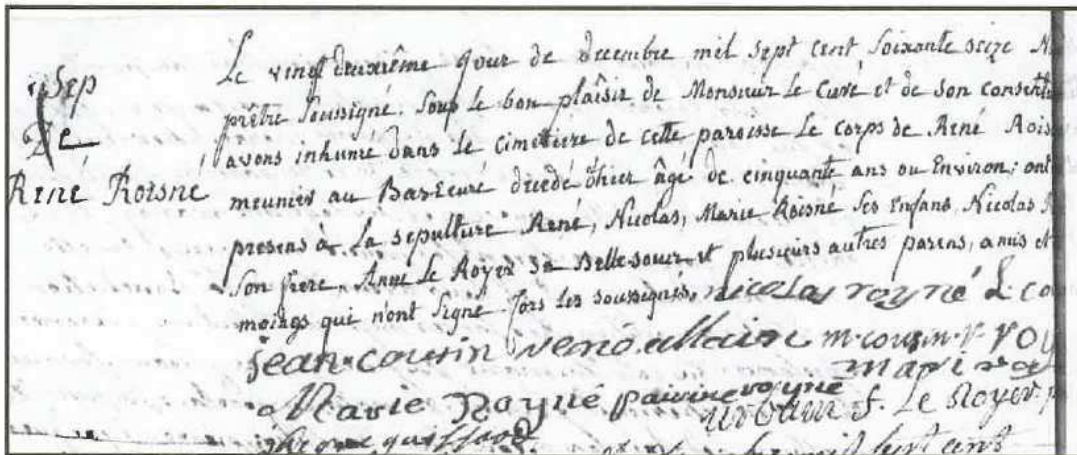 Sep
De
René Roisné
Le vingt deuxième jour de decembre mil sept cent soixante seize
prêtre soussigné. soup le bon plaîsir de Monsieur le Curé et de son
avons inhumé dans le cimettiere de cette paroisse le corps de René
meunier au Bas-Ecuré décédé d'hier âgé de cinquante ans ou Environ; ont
presens à la sepulture René, Nicolas, Marie Roisné ses Enfans, Nicolas
son frere, Anne Le Royer sa Bellesoeur et plusieurs autres parens, amis et
moings qui n'ont signé fors les soussignés, nicolas royné
jean cousin rené allain m. cousin
Marie Royné royné
f. Le Royer